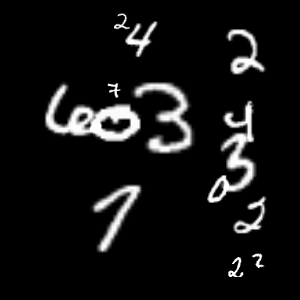 2 4
2
7
6 0 3
4
3
0
1
2
2 2